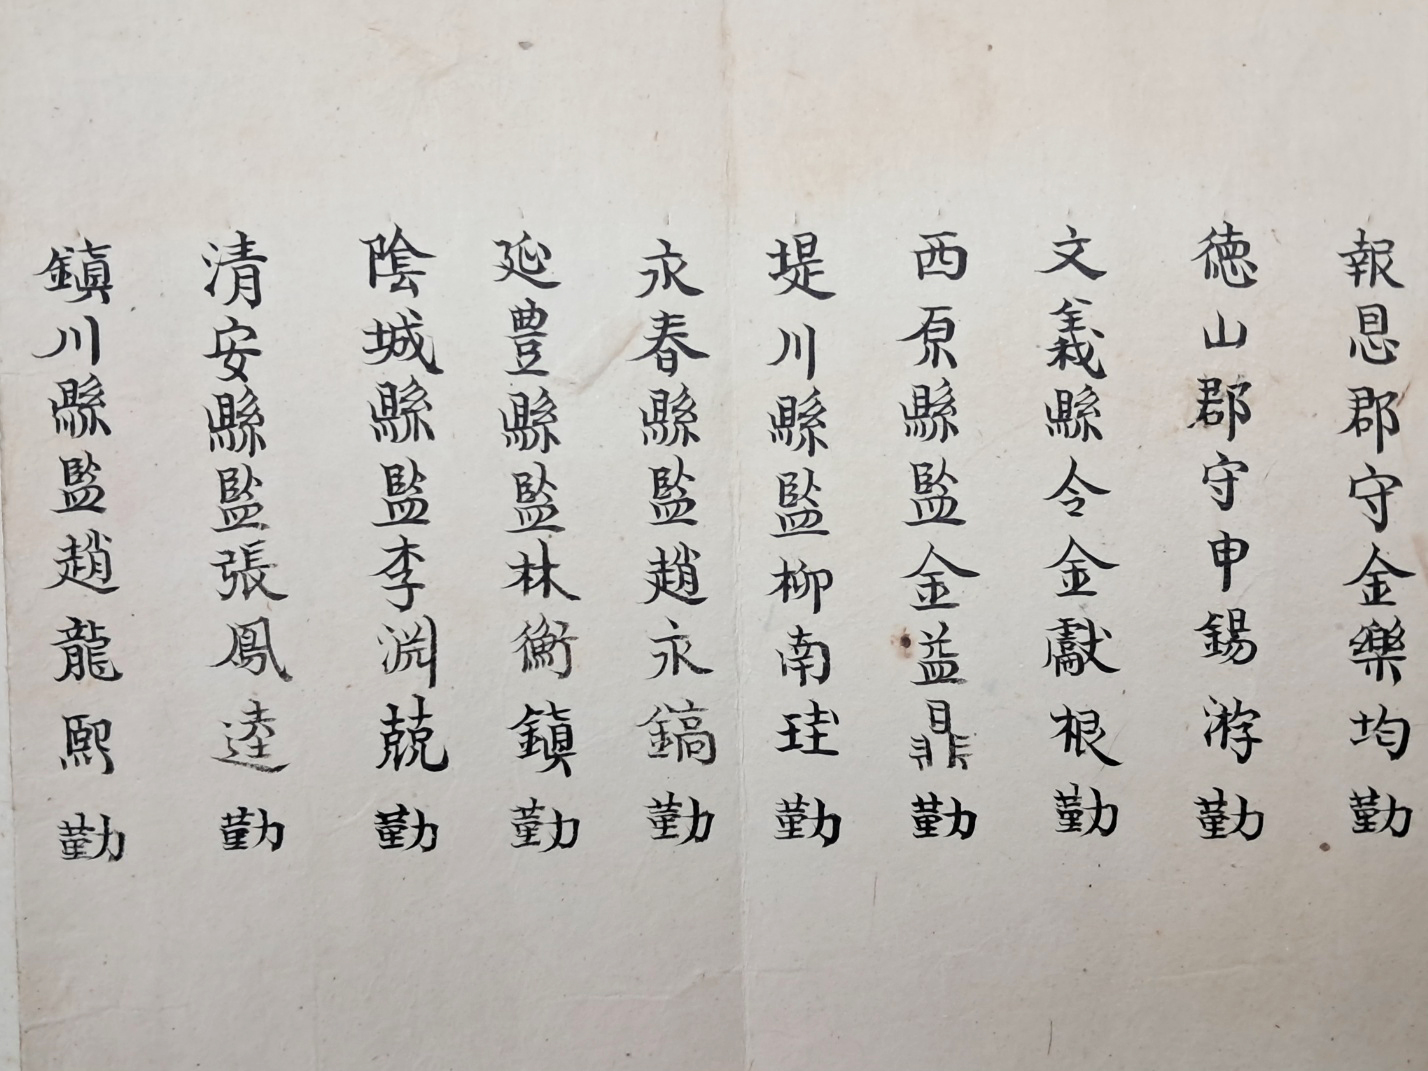 報恩郡守金樂均勤
德山郡守申錫游勤
文義縣令金獻根勤
西原縣監金益鼎勤
堤川縣監柳南珪勤
永春縣監趙永鎬勤
延豊縣監林衡鎮勤
陰城縣監李淵兢勤
清安縣監張鳳逵勤
鎮川縣監趙龍熙勤